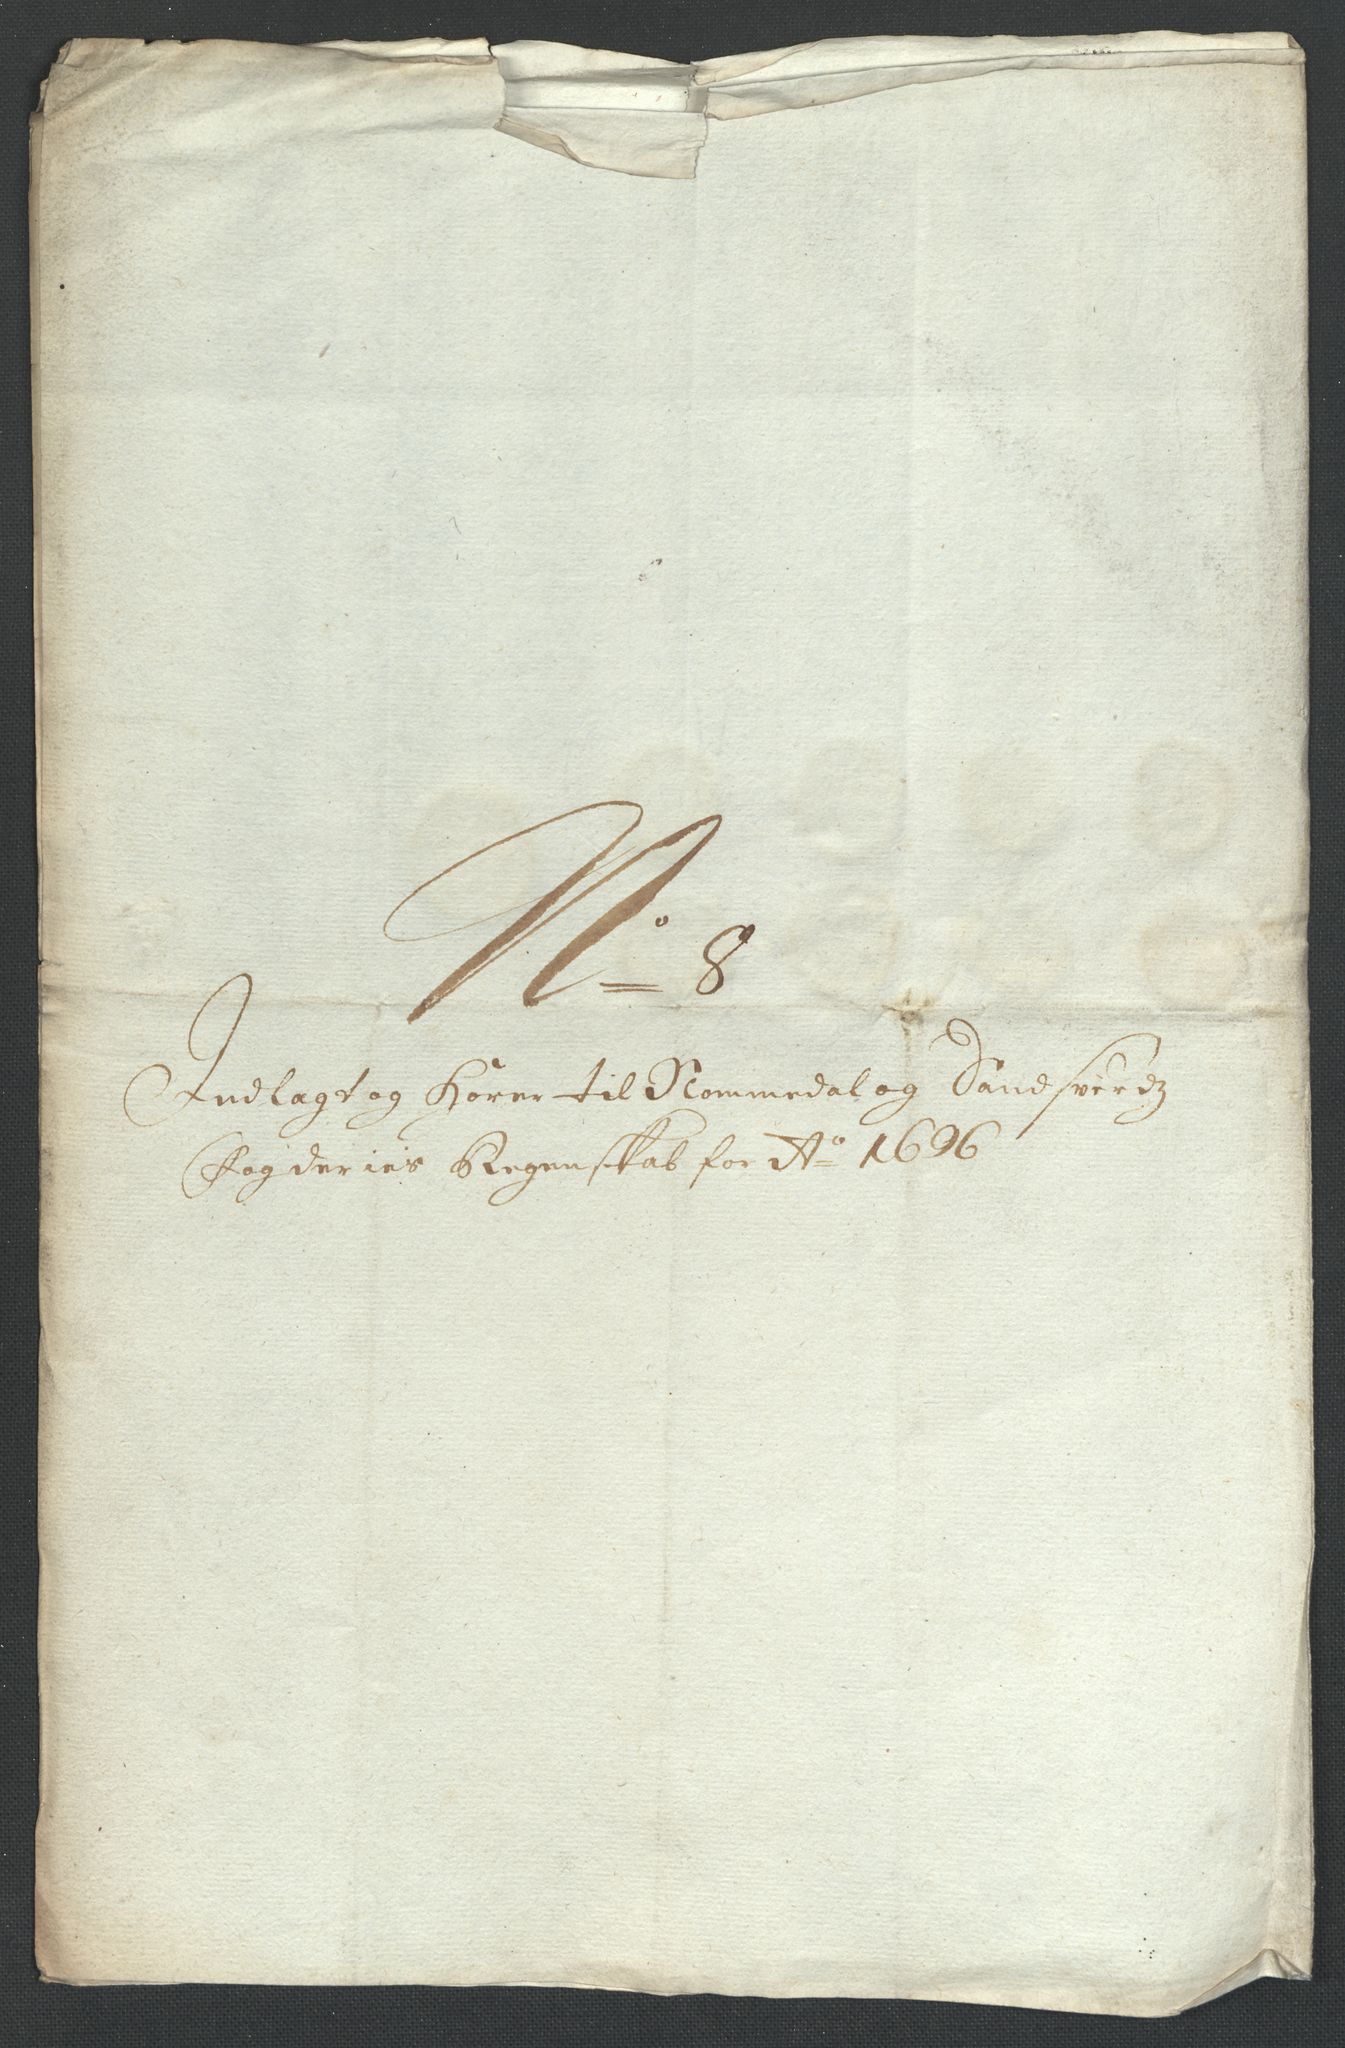 No 8
Indlagt og hører til Nommedal og Sandsverdz
Fogderies Regenskab for Ao 1696